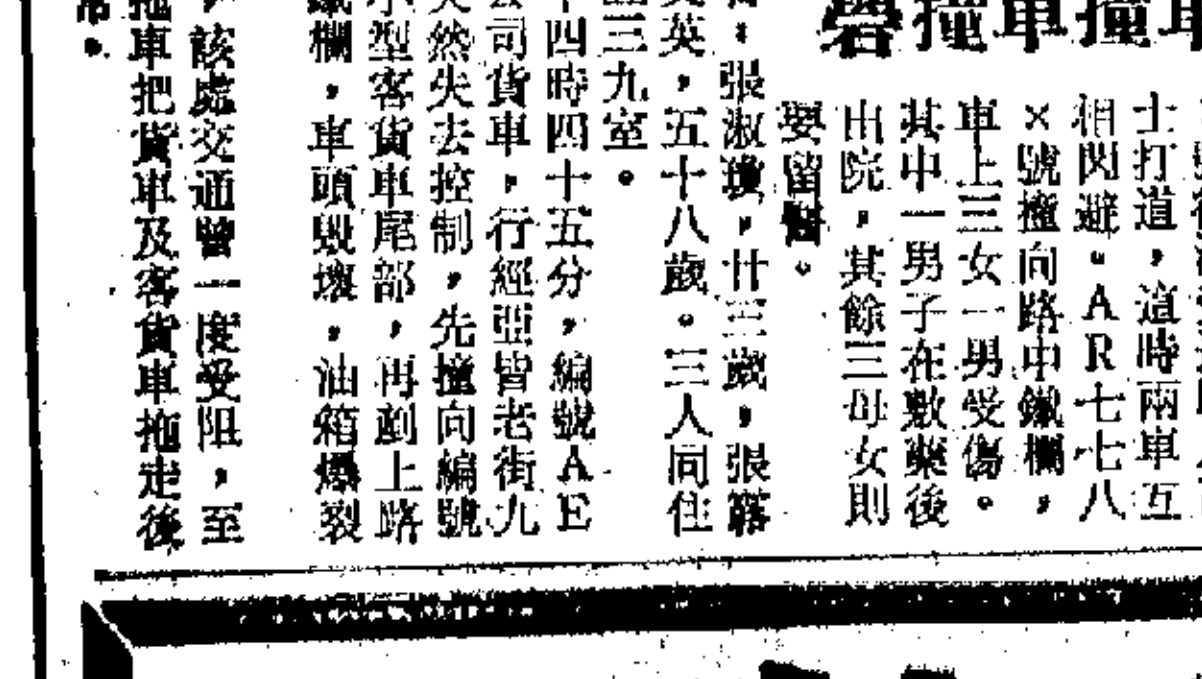 車撞車撞
士打道，這時兩車互
相閃避。AR七七八
×號撞向路中鐵欄，
車上三女一男受傷。
其中一男子在敷藥後
出院，其餘三母女則
要留醫。
：張淑瓊，廿三歲，張
英，五十八歲。三人同住
三九室。
四時四十五分，編號AE
公司貨車，行經亞皆老街九
突然失去控制，先撞向編號
小型客貨車尾部，再剷上路
鐵欄，車頭毀壞，油箱爆裂
，該處交通曾一度受阻，至
拖車把貨車及客貨車拖走後
常。